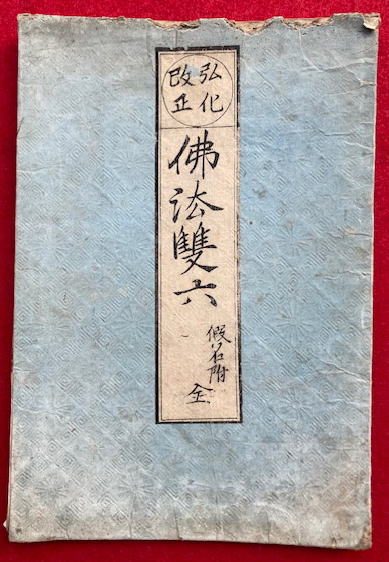 弘化
改正
佛法雙六
假名附
全